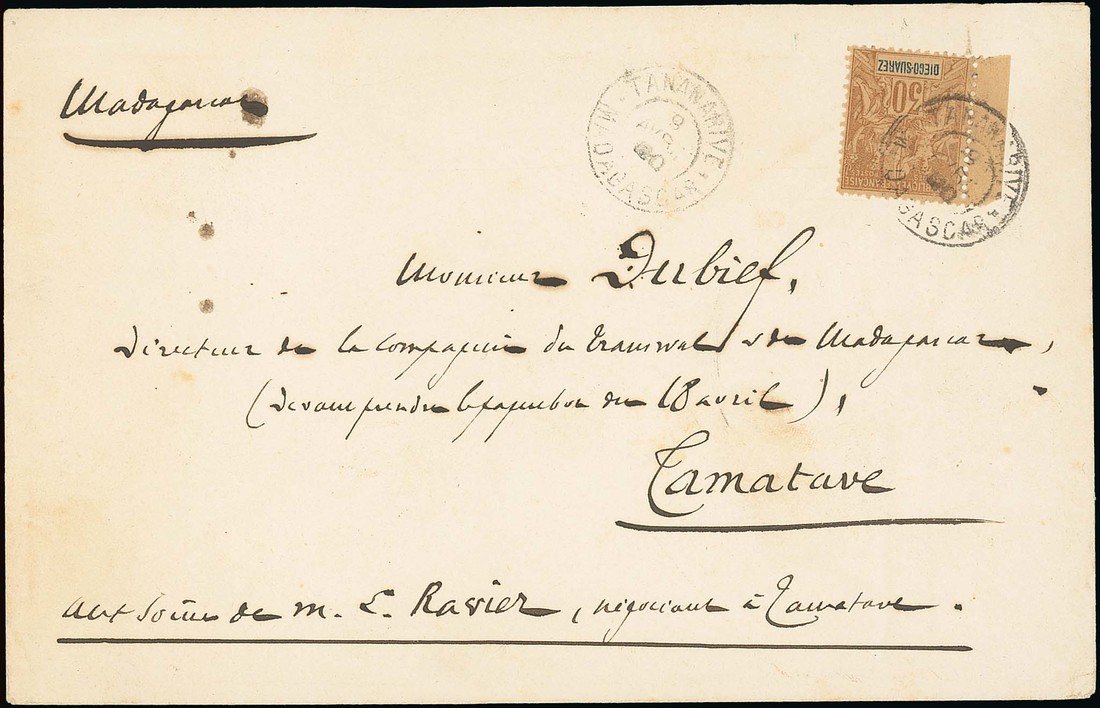 Madagascar
TANANARIVE
9 AVRIL 00
MADAGASCAR
DIEGO-SUAREZ
30
POSTES
TANANARIVE
MADAGASCAR
Monsieur Dubief,
Directeur de la Compagnie du Transwal & de Madagascar,
(devant prendre le paquebot du 18 avril),
Tamatave
aux soins de M. L. Ravier, négociant à Tamatave.